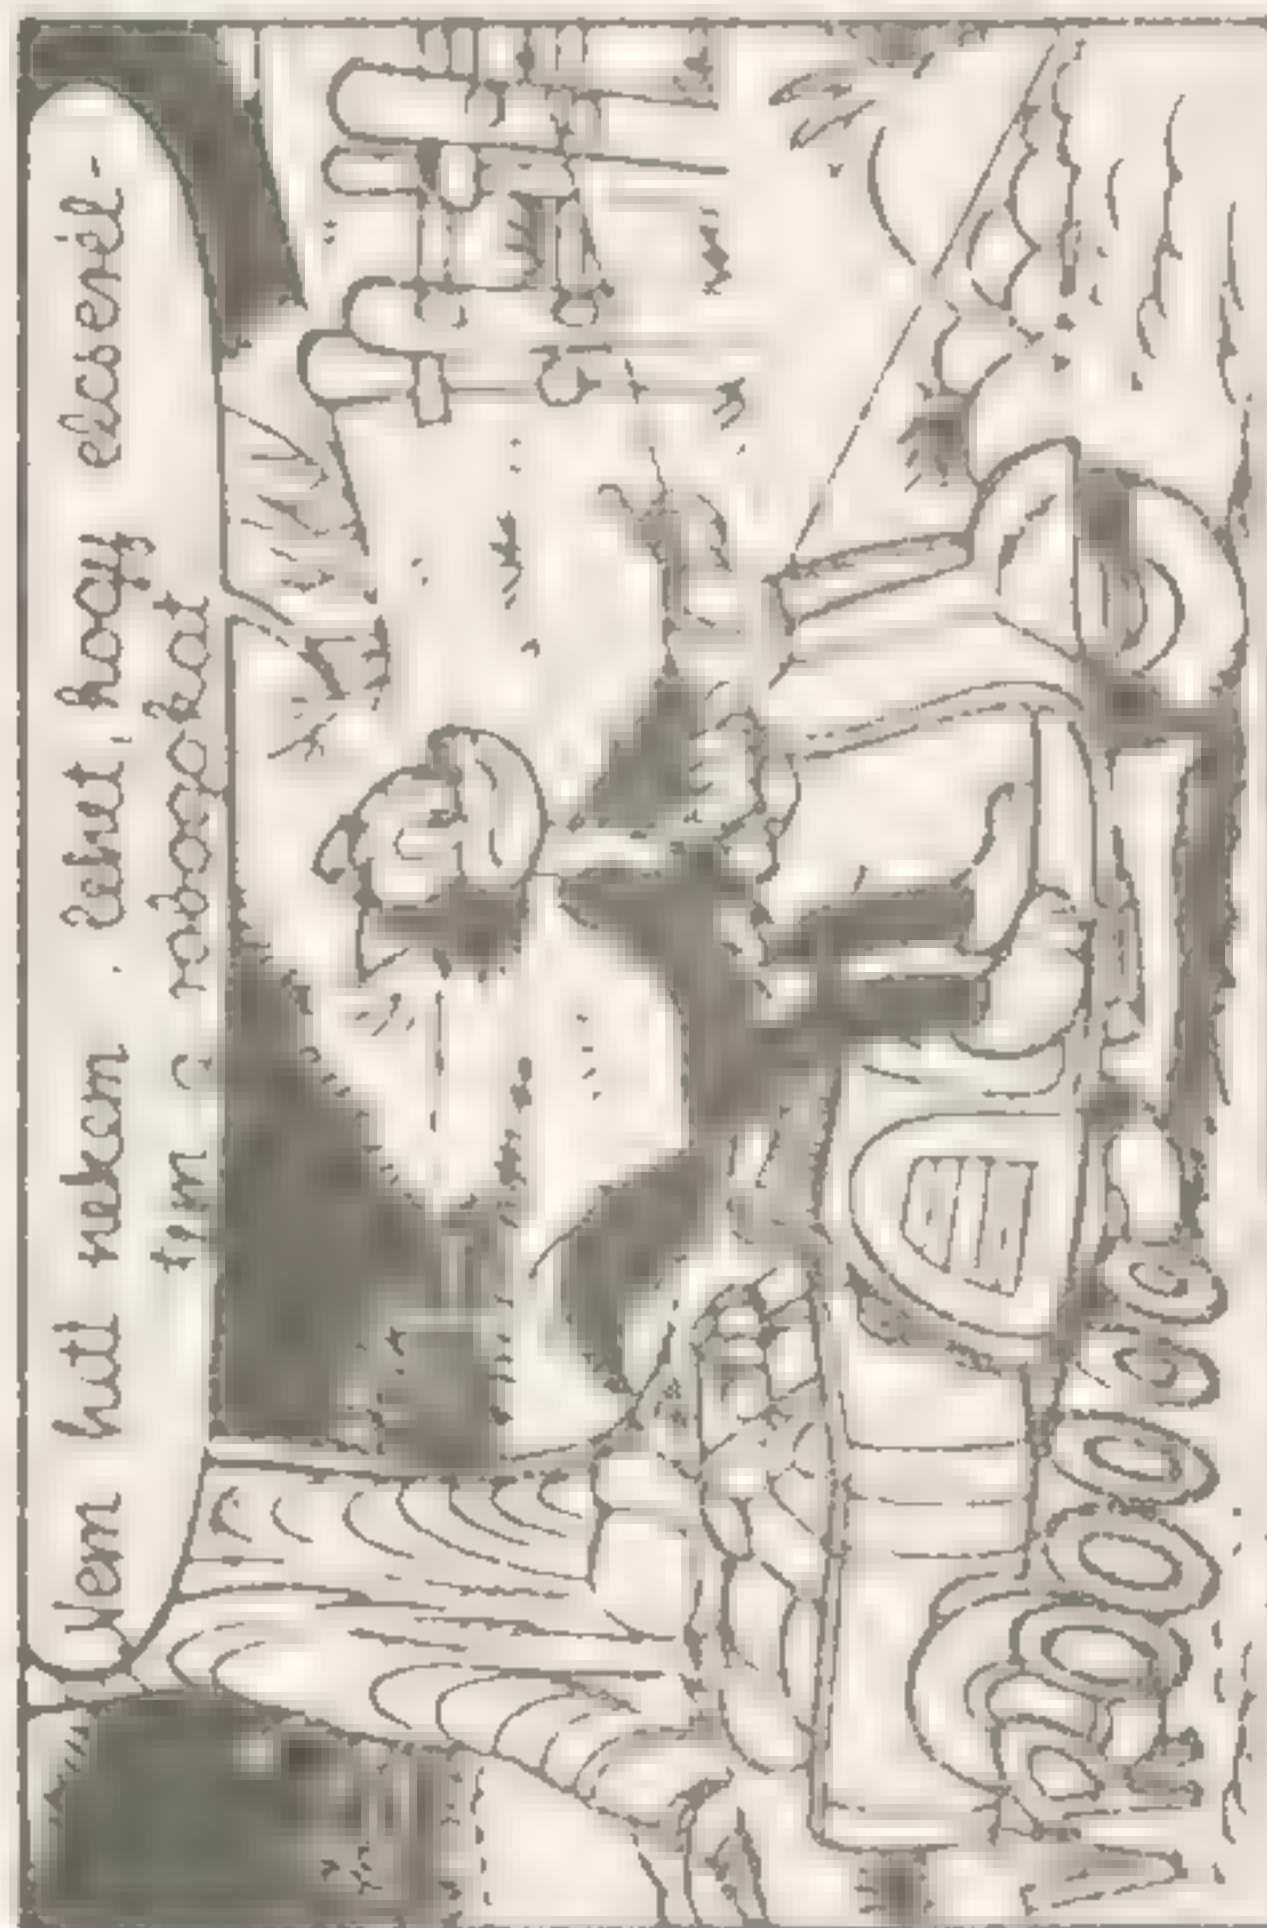 Nem hitt nekem. Lehet, hogy elcserél-
tem a rabokat